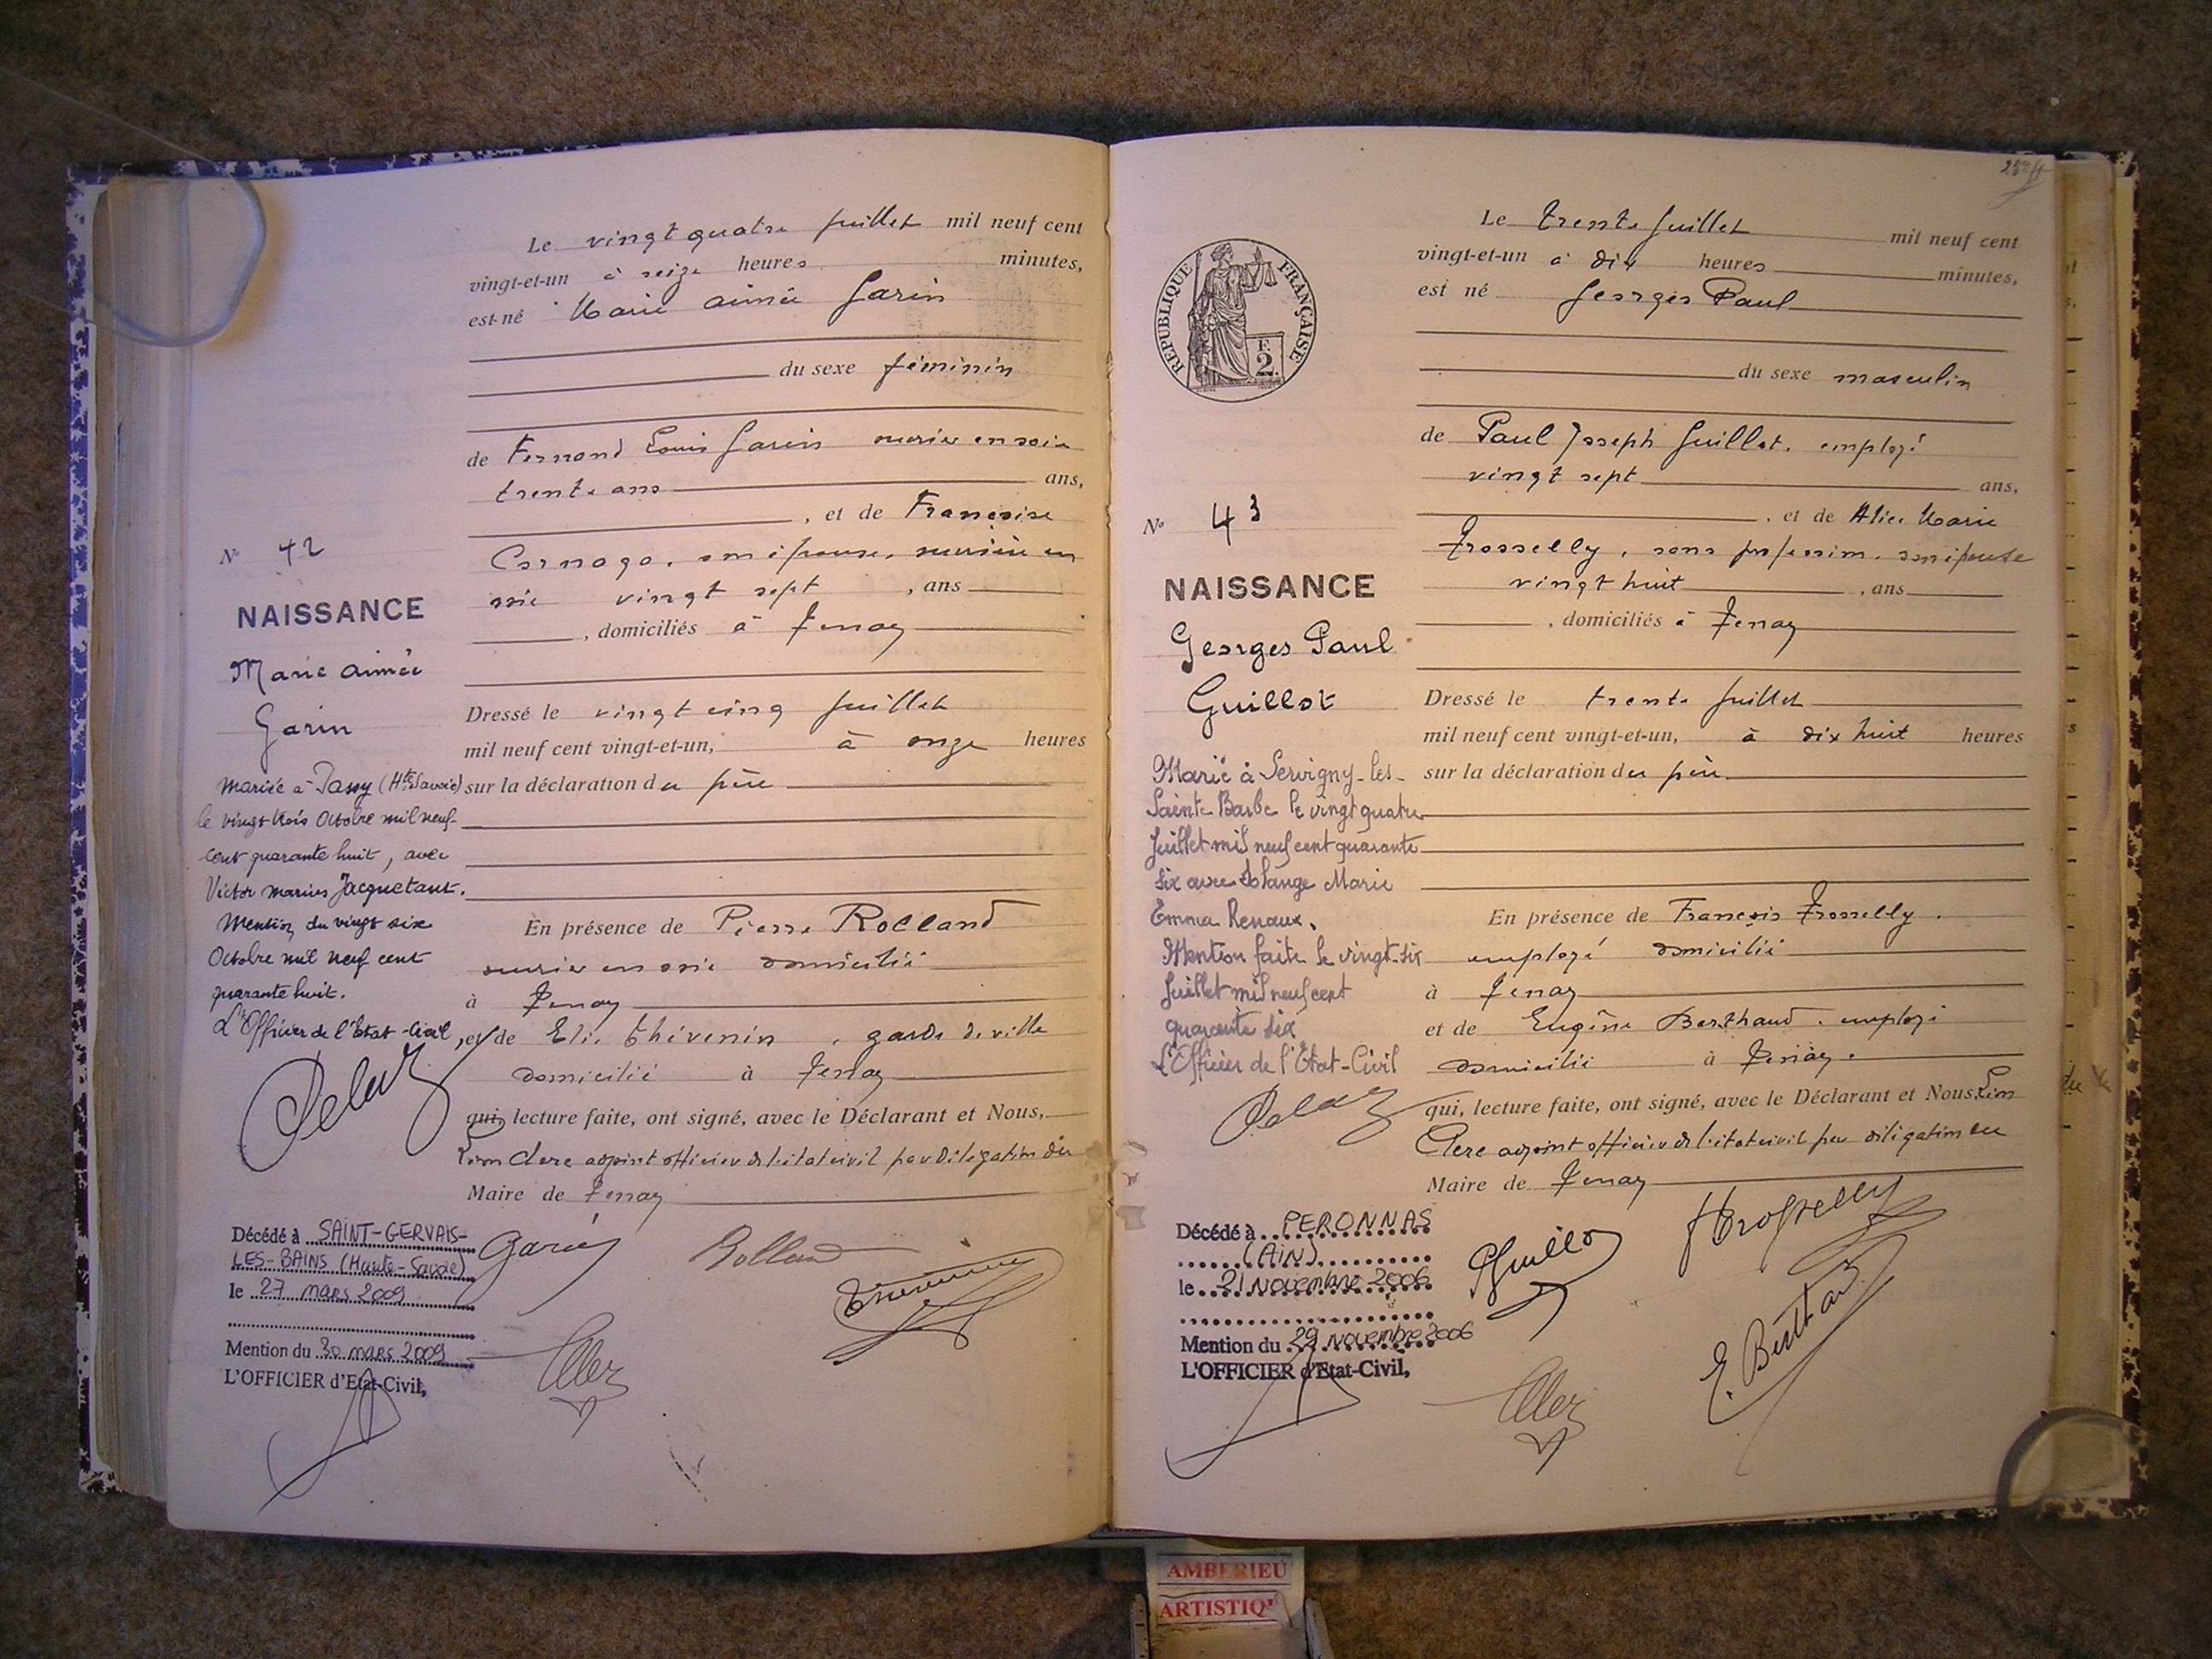 Le vingt quatre juillet mil neuf cent
vingt-et-un à seize heures minutes,
est né Marie Aimée Garin
du sexe féminin
de Fernand Louis Garin ouvrier en soie
trente ans ans,
, et de Françoise
Cornago, son épouse, ouvrière en
soie vingt sept , ans
, domiciliés à Tenay
Dressé le vingt cinq juillet
mil neuf cent vingt-et-un, à onze heures
sur la déclaration du père
En présence de Pierre Rolland
ouvrier en soie domicilié
à Tenay
et de Elie Thévenin, garde de ville
domicilié à Tenay
qui, lecture faite, ont signé, avec le Déclarant et Nous,
Léon Clerc adjoint officier de l'état civil par délégation du
Maire de Tenay
Garin Rolland
Thévenin
N° 42
NAISSANCE
Marie Aimée
Garin
Mariée à Passy (Hte Savoie)
le vingt trois Octobre mil neuf
cent quarante huit, avec
Victor Marius Jacquetant.
Mention du vingt six
Octobre mil neuf cent
quarante huit.
L'Officier de l'Etat-Civil,
Décédé à SAINT-GERVAIS-
LES-BAINS (Haute-Savoie)
le 27 mars 2009
Mention du 30 mars 2009
L'OFFICIER d'Etat-Civil,
25
REPUBLIQUE FRANÇAISE
F.
2
Le trente juillet mil neuf cent
vingt-et-un à dix heures minutes,
est né Georges Paul
du sexe masculin
de Paul Joseph Guillot, employé
vingt sept ans,
, et de Alice Marie
Trosselly, sans profession, son épouse
vingt huit , ans
, domiciliés à Tenay
Dressé le trente juillet
mil neuf cent vingt-et-un, à dix huit heures
sur la déclaration du père
En présence de François Trosselly,
employé domicilié
à Tenay
et de Eugène Berthaud, employé
domicilié à Tenay.
qui, lecture faite, ont signé, avec le Déclarant et Nous, Léon
Clerc adjoint officier de l'état civil par délégation du
Maire de Tenay
PGuillot Trosselly
E. Berthaud
N° 43
NAISSANCE
Georges Paul
Guillot
Marié à Servigny-les-
Sainte Barbe le vingt quatre
Juillet mil neuf cent quarante
six avec Solange Marie
Emma Renaux.
Mention faite le vingt-six
Juillet mil neuf cent
quarante six
L'Officier de l'Etat-Civil
Décédé à PERONNAS
(AIN)
le 21 Novembre 2006
Mention du 29 novembre 2006
L'OFFICIER d'Etat-Civil,
AMBERIEU
ARTISTIQ'